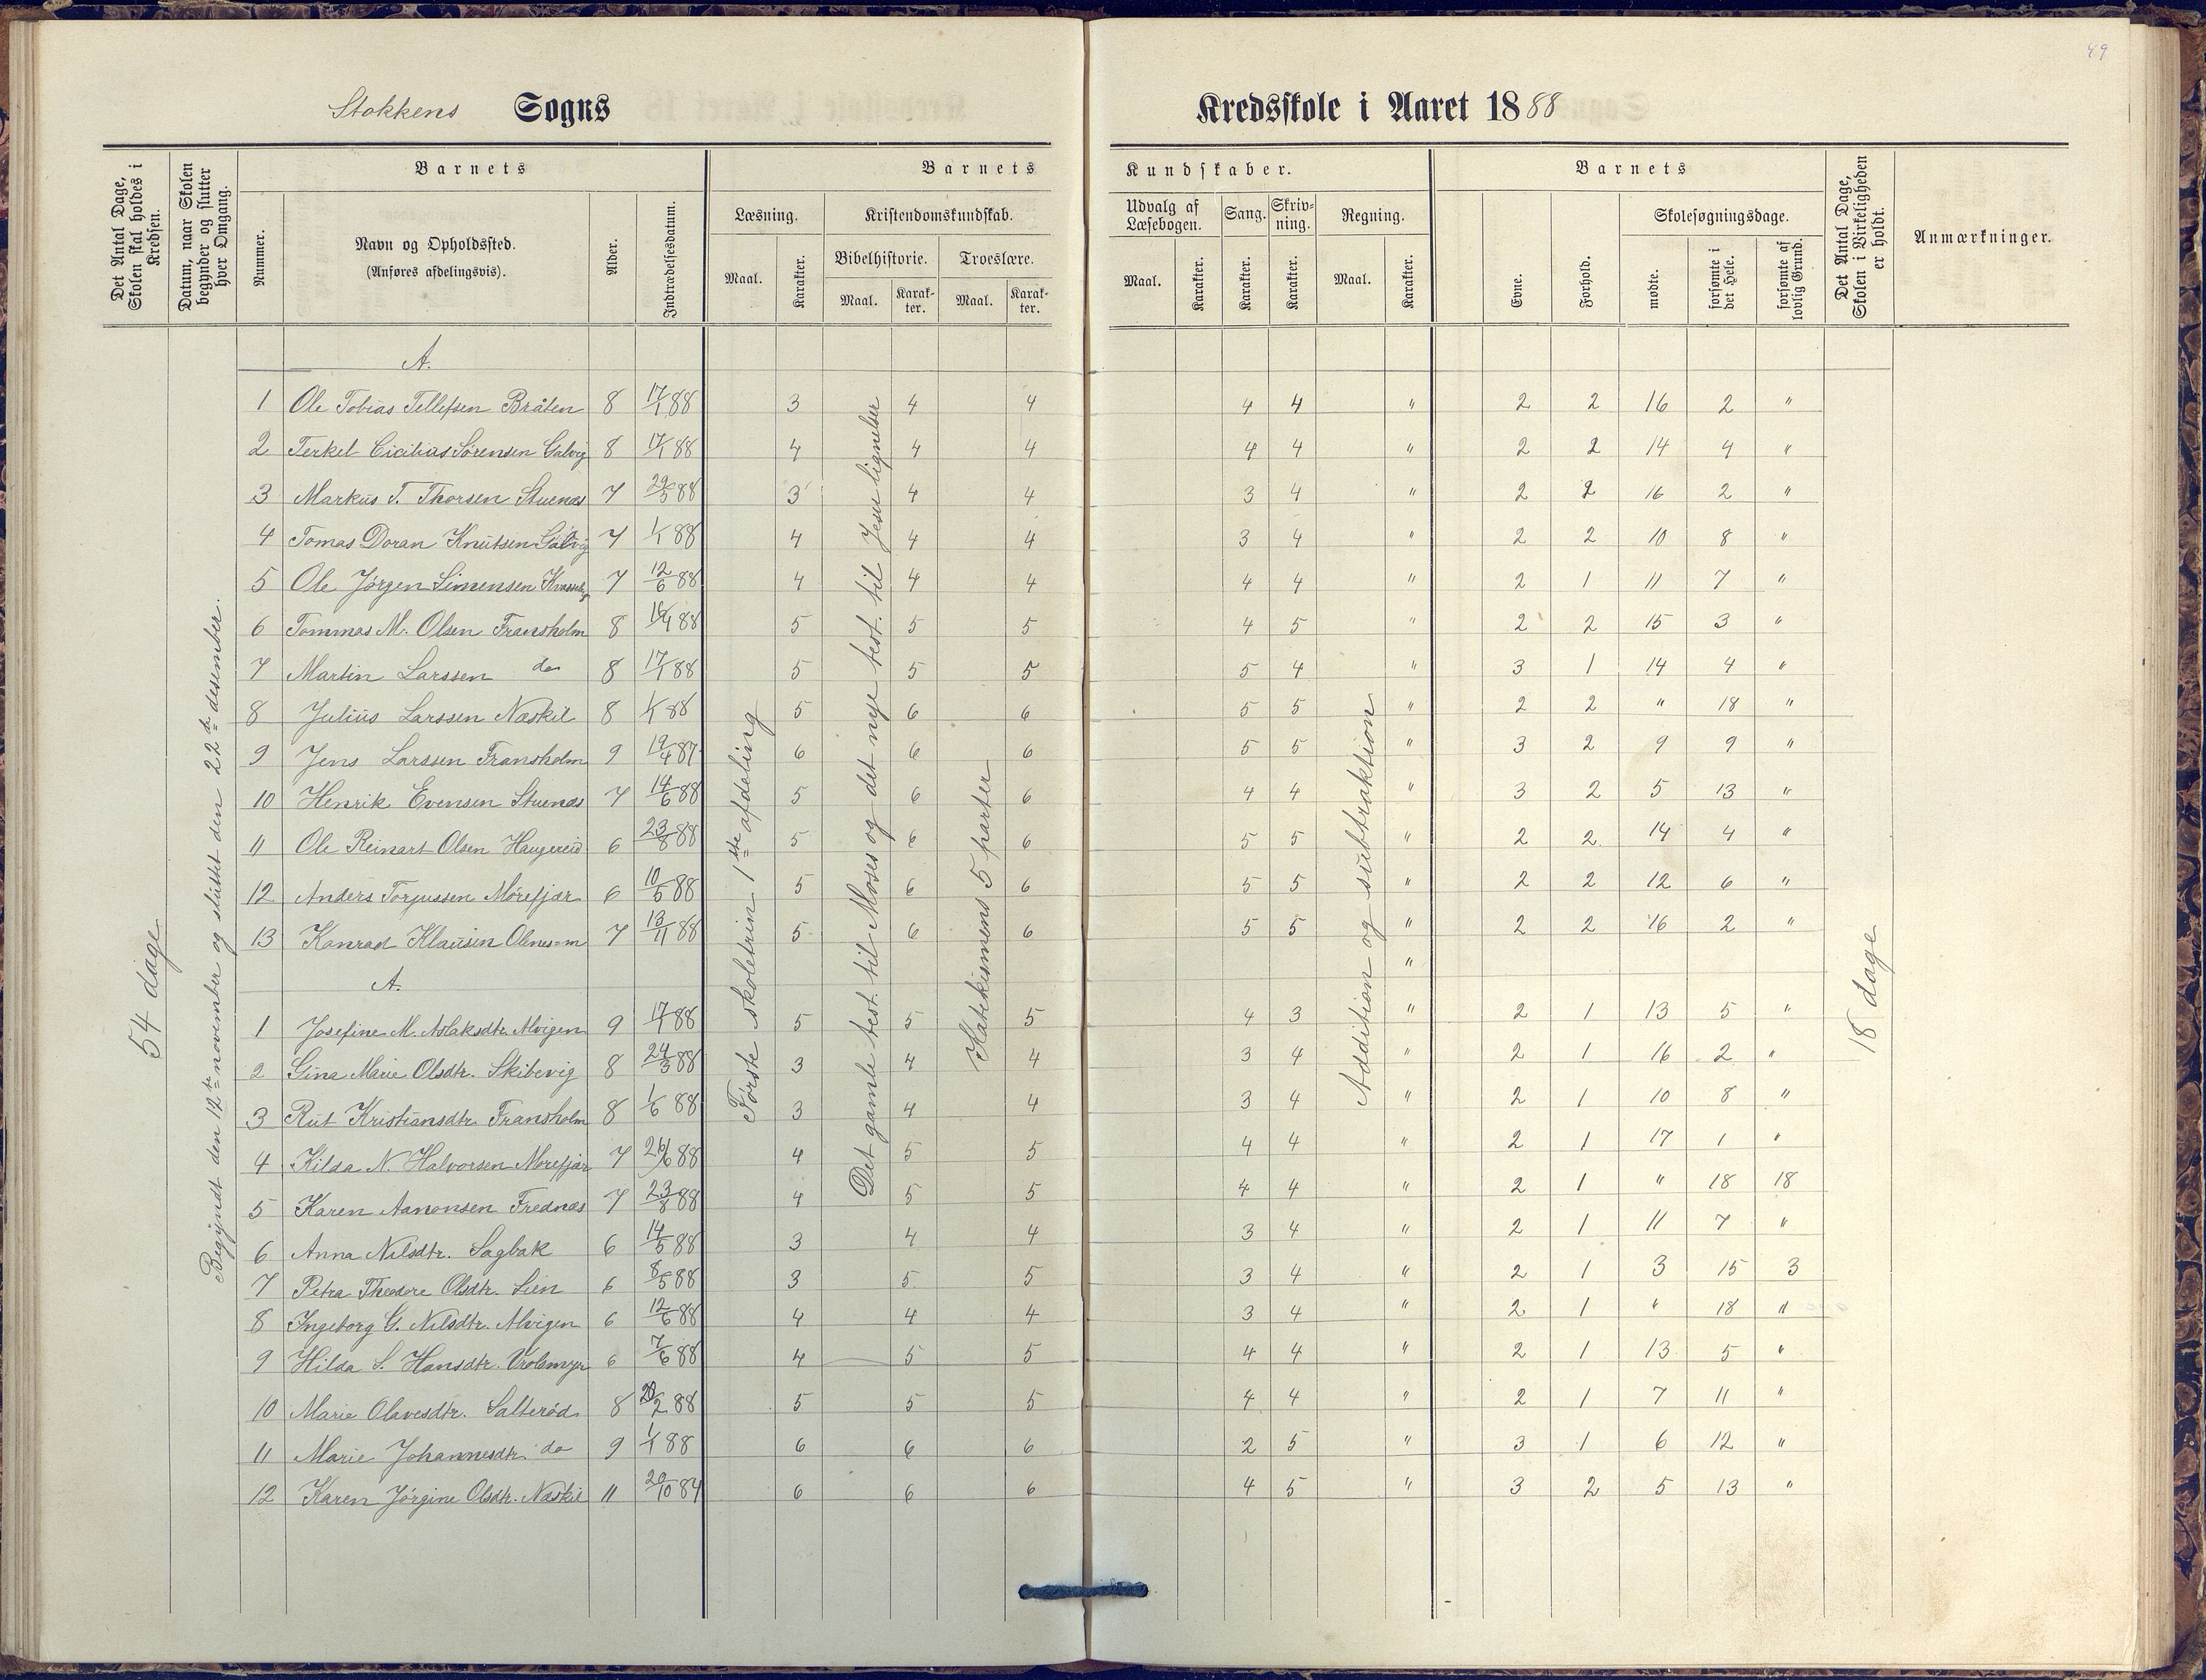 49
Stokkens Sogns Kredsskole i Aaret 1888
Det Antal Dage, Skolen skal holdes i Kredsen.
Datum, naar Skolen begynder og slutter hver Omgang.
Barnets
Nummer.
Navn og Opholdssted.
(Anføres afdelingsvis).
Alder.
Indtrædelsesdatum.
Barnets Kundskaber.
Læsning.
Maal.
Karakter.
Kristendomskundskab.
Bibelhistorie.
Maal.
Karakter.
Troeslære.
Maal.
Karakter.
Udvalg af Læsebogen.
Maal.
Karakter.
Sang.
Karakter.
Skrivning.
Karakter.
Regning.
Maal.
Karakter.
Barnets
Evne.
Forhold.
Skolesøgningsdage.
mødte.
forsømte i det Hele.
forsømte af lovlig Grund.
Det Antal Dage, Skolen i Virkeligheden er holdt.
Anmærkninger.
54 dage
Begyndt den 12te november og sluttet den 22de desember.
Første skoletrin 1ste afdeling
Det gamle test. til Moses og det nye test. til Jesu lignelser
Katekismens 5 parter
Addition og subtraktion
18 dage
A.
1 Ole Tobias Tellefsen Bråten 8 17/1 88 3 4 4 4 4 " 2 2 16 2 "
2 Terkel Cicilius Sørensen Galvig 8 17/1 88 4 4 4 4 4 " 2 2 14 4 "
3 Markus T. Thorsen Stuenes 7 29/5 88 3 4 4 3 4 " 2 2 16 2 "
4 Tomas Doran Knutsen 7 1/1 88 4 4 4 3 4 " 2 2 10 8 "
5 Ole Jørgen Simensen 7 12/6 88 4 4 4 4 4 " 2 1 11 7 "
6 Tommas M. Olsen Fransholm 8 88 5 5 5 4 5 " 2 2 15 3 "
7 Martin Larssen do 8 17/1 88 5 5 5 5 4 " 3 1 14 4 "
8 Julius Larssen Næskil 8 1/1 88 5 6 6 5 5 " 2 2 " 18 "
9 Jens Larssen Fransholm 9 19/4 87 6 6 6 5 5 " 3 2 9 9 "
10 Henrik Evensen Stuenes 7 14/6 88 5 6 6 4 4 " 3 2 5 13 "
11 Ole Reinart Olsen Haugereid 6 23/8 88 5 6 6 5 5 " 2 2 14 4 "
12 Anders Torjussen Mørefjær 6 10/5 88 5 6 6 5 5 " 2 2 12 6 "
13 Konrad Klausen 7 13/11 88 5 6 6 5 5 " 2 2 16 2 "
A. "
1 Josefine M. Aslaksdtr. Alvigen 9 17/1 88 5 5 5 4 3 " 2 1 13 5 "
2 Gina Marie Olsdtr. Skibevig 8 24/3 88 3 4 4 3 4 " 2 1 16 2 "
3 Rut Kristiansdtr. Fransholm 8 1/6 88 3 4 4 3 4 " 2 1 10 8 "
4 Kilda N. Halvorsen Mørefjær 7 26/6 88 4 5 5 4 4 " 2 1 17 1 "
5 Karen Aanonsen Frednæs 7 23/8 88 4 5 5 4 4 " 2 1 " 18 18
6 Anna Nilsdtr. Sagbak 6 14/5 88 3 4 4 3 4 " 2 1 11 7 "
7 Petra Theodore Olsdtr. Lien 6 8/5 88 3 5 5 3 4 " 2 1 3 15 3
8 Ingeborg G. Nilsdtr. Alvigen 6 12/6 88 4 4 4 3 4 " 2 1 " 18 "
9 Hilda S. Hansdtr. Vrolsmyr 6 7/6 88 4 5 5 4 4 " 2 1 13 5 "
10 Marie Olavesdtr. Salterød 8 20/2 88 5 5 5 4 4 " 2 1 7 11 "
11 Marie Johannesdtr. do 9 1/1 88 6 6 6 2 5 " 3 1 6 12 "
12 Karen Jørgine Olsdtr. Næskil 11 20/10 84 6 6 6 4 5 " 3 2 5 13 "